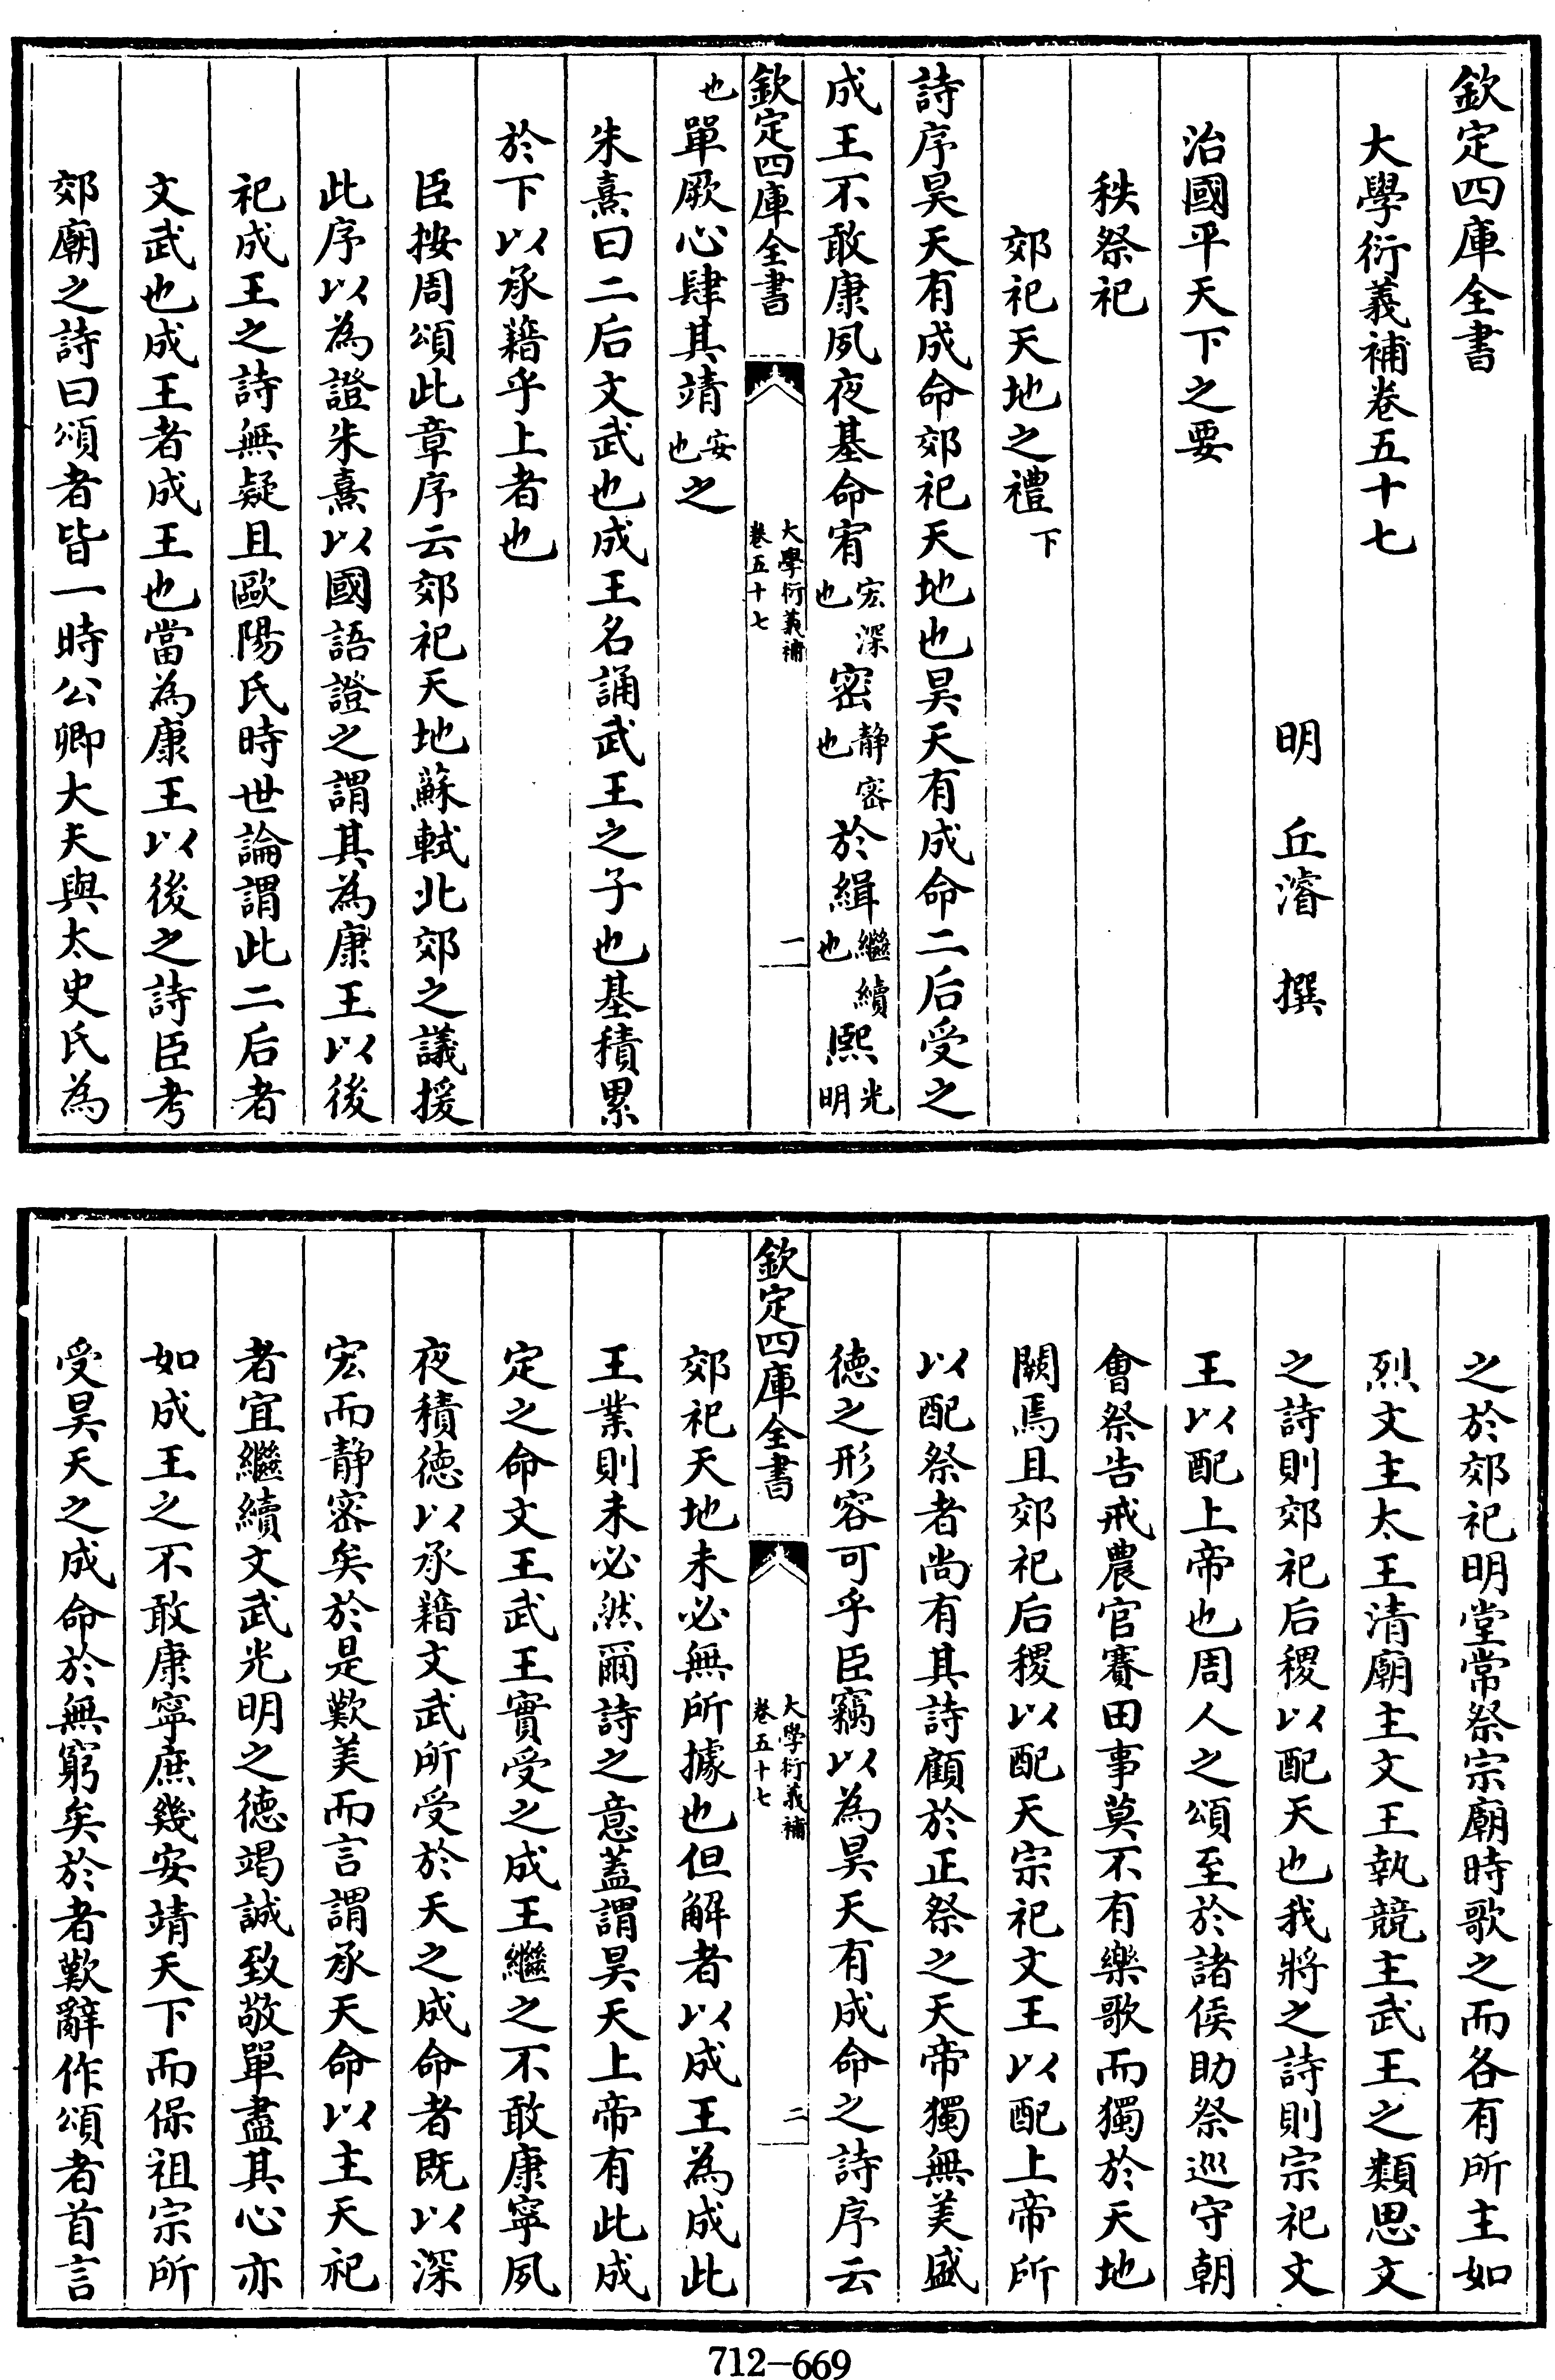 欽定四庫全書
大學衍義補卷五十七
明　丘濬　撰
治國平天下之要
秩祭祀
郊祀天地之禮下
詩序昊天有成命郊祀天地也昊天有成命二后受之
成王不敢康夙夜基命宥宏深也密静密也於緝繼續也熙光明
欽定四庫全書　大學衍義補卷五十七　一
也單厥心肆其靖安也之
朱熹曰二后文武也成王名誦武王之子也基積累
於下以承藉乎上者也
臣按周頌此章序云郊祀天地蘇軾北郊之議援
此序以為證朱熹以國語證之謂其為康王以後
祀成王之詩無疑且歐陽氏時世論謂此二后者
文武也成王者成王也當為康王以後之詩臣考
郊廟之詩曰頌者皆一時公卿大夫與太史氏為
之於郊祀明堂常祭宗廟時歌之而各有所主如
烈文主太王清廟主文王執競主武王之類思文
之詩則郊祀后稷以配天也我將之詩則宗祀文
王以配上帝也周人之頌至於諸侯助祭巡守朝
會祭告戒農官賽田事莫不有樂歌而獨於天地
闕焉且郊祀后稷以配天宗祀文王以配上帝所
以配祭者尚有其詩顧於正祭之天帝獨無美盛
徳之形容可乎臣竊以為昊天有成命之詩序云
欽定四庫全書　大學衍義補卷五十七　二
郊祀天地未必無所據也但解者以成王為成此
王業則未必然爾詩之意蓋謂昊天上帝有此成
定之命文王武王實受之成王繼之不敢康寧夙
夜積徳以承藉文武所受於天之成命者既以深
宏而静密矣於是歎美而言謂承天命以主天祀
者宜繼續文武光明之徳竭誠致敬單盡其心亦
如成王之不敢康寧庶幾安靖天下而保祖宗所
受昊天之成命於無窮矣於者歎辭作頌者首言
712-669